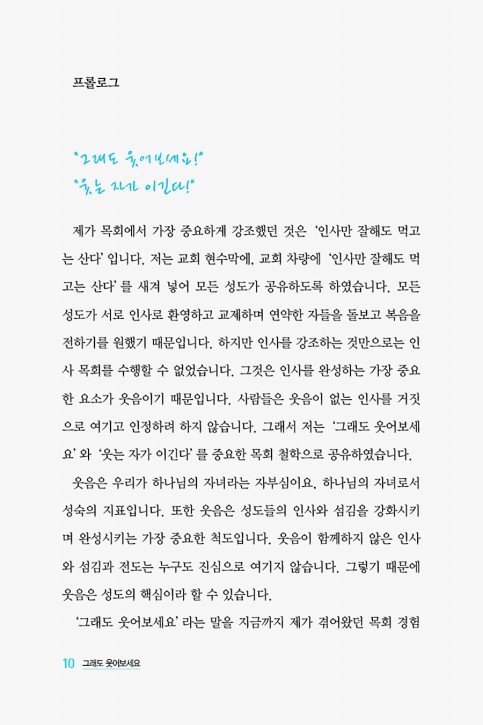 프롤로그
"그래도 웃어보세요!"
"웃는 자가 이긴다!"
제가 목회에서 가장 중요하게 강조했던 것은 '인사만 잘해도 먹고
는 산다'입니다. 저는 교회 현수막에, 교회 차량에 '인사만 잘해도 먹
고는 산다'를 새겨 넣어 모든 성도가 공유하도록 하였습니다. 모든
성도가 서로 인사로 환영하고 교제하며 연약한 자들을 돌보고 복음을
전하기를 원했기 때문입니다. 하지만 인사를 강조하는 것만으로는 인
사 목회를 수행할 수 없었습니다. 그것은 인사를 완성하는 가장 중요
한 요소가 웃음이기 때문입니다. 사람들은 웃음이 없는 인사를 거짓
으로 여기고 인정하려 하지 않습니다. 그래서 저는 '그래도 웃어보세
요'와 '웃는 자가 이긴다'를 중요한 목회 철학으로 공유하였습니다.
웃음은 우리가 하나님의 자녀라는 자부심이요, 하나님의 자녀로서
성숙의 지표입니다. 또한 웃음은 성도들의 인사와 섬김을 강화시키
며 완성시키는 가장 중요한 척도입니다. 웃음이 함께하지 않은 인사
와 섬김과 전도는 누구도 진심으로 여기지 않습니다. 그렇기 때문에
웃음은 성도의 핵심이라 할 수 있습니다.
'그래도 웃어보세요'라는 말을 지금까지 제가 겪어왔던 목회 경험
10 그래도 웃어보세요